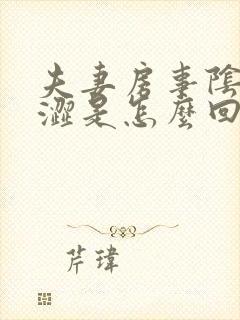 夫妻房事陰
澀是怎麼回
芹瑋